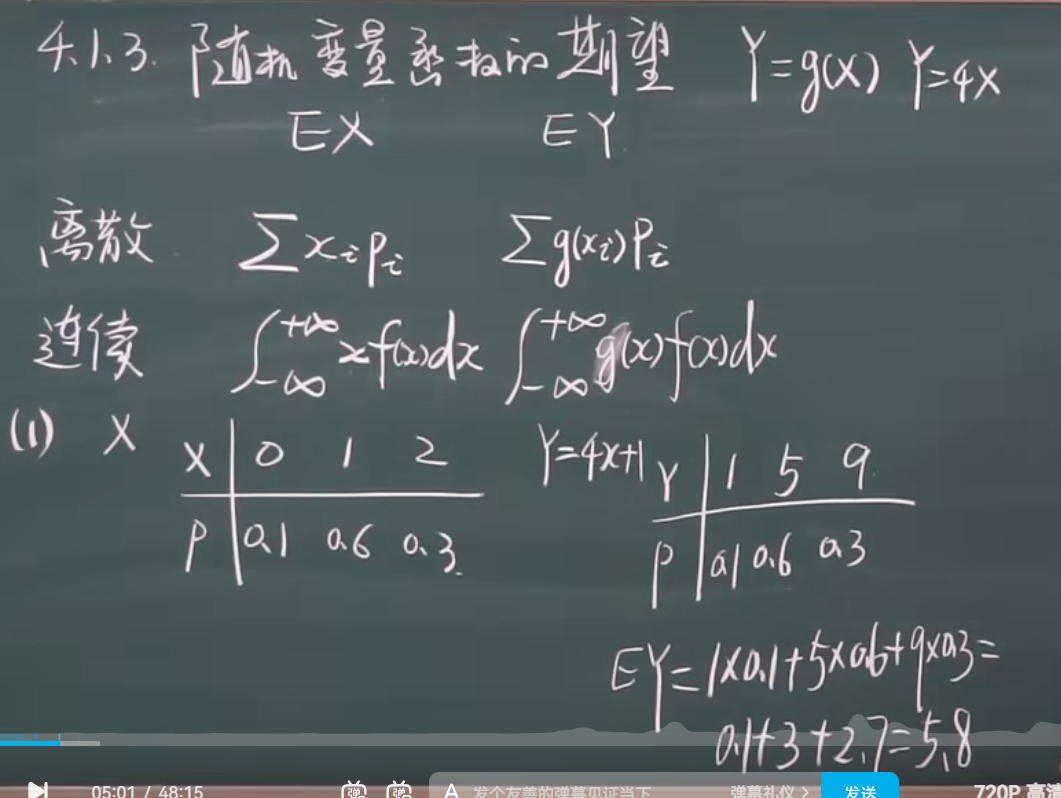 4.1.3. 随机变量函数的期望 Y=g(X) Y=4X
EX EY
离散 ∑xᵢpᵢ ∑g(xᵢ)Pᵢ
连续 ∫₋∞⁺∞ xf(x)dx ∫₋∞⁺∞ g(x)f(x)dx
(1) X
X 0 1 2
P 0.1 0.6 0.3
Y=4X+1
Y 1 5 9
P 0.1 0.6 0.3
EY=1×0.1+5×0.6+9×0.3=
0.1+3+2.7=5.8
05:01 / 48:15 弹 弹 A 发个友善的弹幕见证当下 弹幕礼仪 > 发送 720P 高清